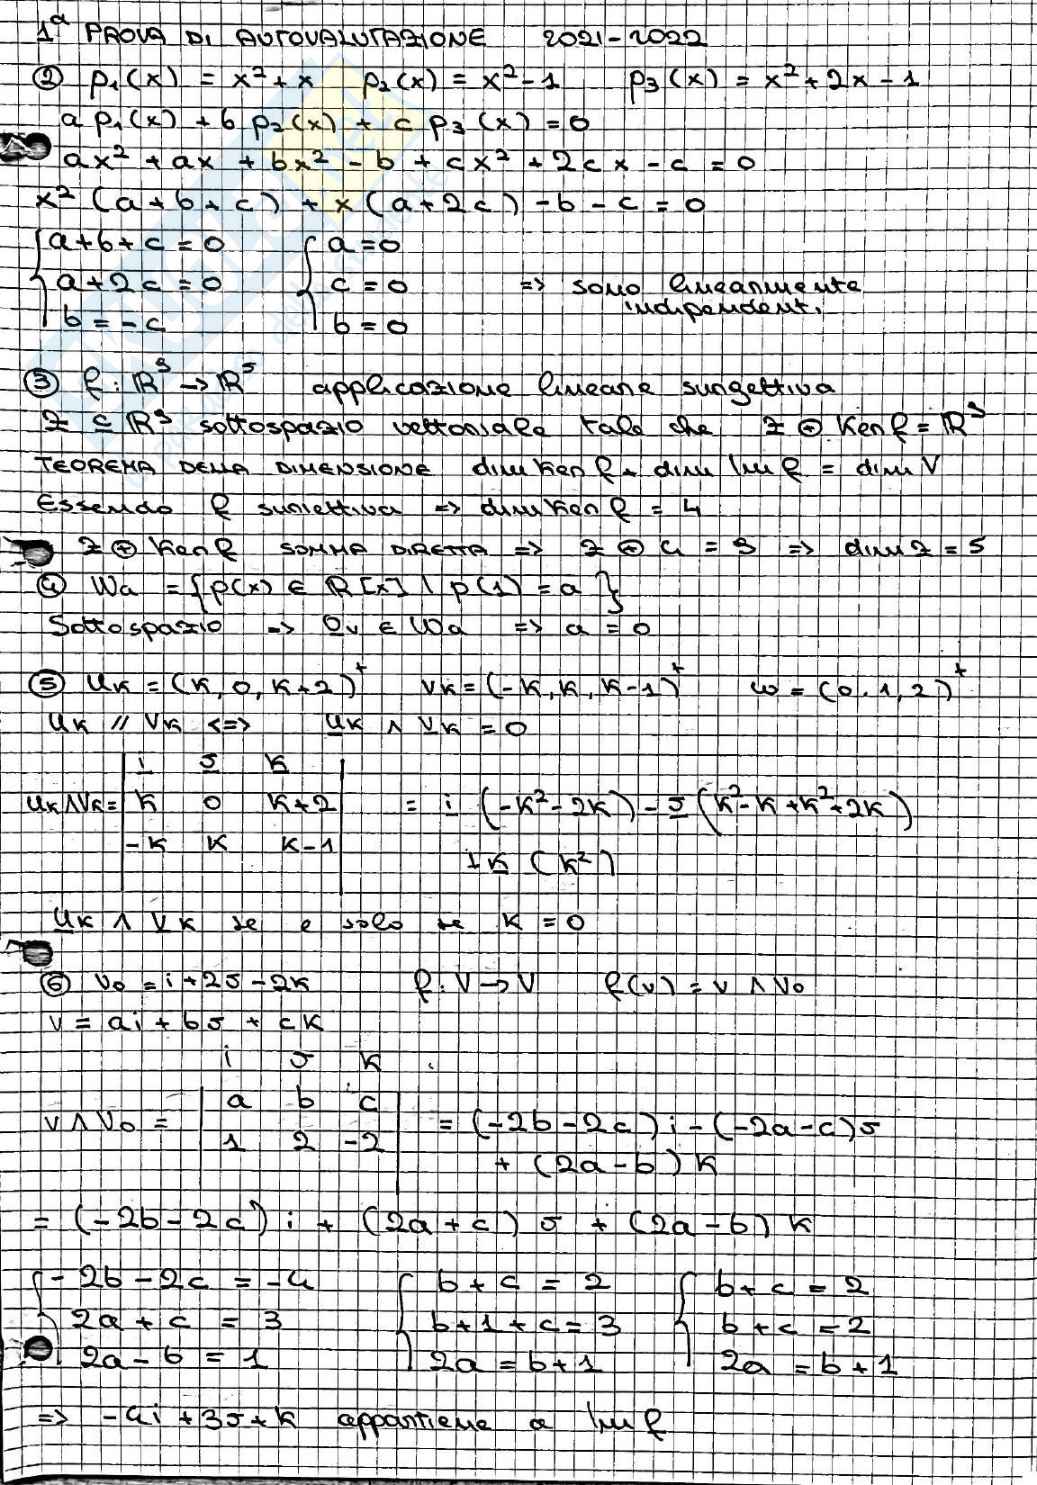 1ª PROVA DI AUTOVALUTAZIONE 2021-2022
② p₁(x) = x² + x p₂(x) = x² - 1 p₃(x) = x² + 2x - 1
a p₁(x) + b p₂(x) + c p₃(x) = 0
ax² + ax + bx² - b + cx² + 2cx - c = 0
x² (a + b + c) + x(a + 2c) - b - c = 0
{ a + b + c = 0 { a = 0
a + 2c = 0 c = 0 => sono linearmente
indipendenti
b = -c b = 0
③ f : ℝ⁹ → ℝ⁵ applicazione lineare surgettiva
Z ⊆ ℝ⁹ sottospazio vettoriale tale che Z ⊕ Ker f = ℝ⁹
TEOREMA DELLA DIMENSIONE dim Ker f + dim Im f = dim V
Essendo f suriettiva => dim Ker f = 4
Z ⊕ Ker f SOMMA DIRETTA => Z ⊕ 4 = 9 => dim Z = 5
④ Wa = { p(x) ∈ ℝ[x] | p(1) = a }
Sottospazio => 0v ∈ Wa => a = 0
⑤ uk = (k, 0, k+2)ᵗ vk = (-k, k, k-1)ᵗ w = (0, 1, 2)ᵗ
uk // vk <=> uk ∧ vk = 0
i j k
uk∧vk = | k 0 k+2 | = i (-k² - 2k) - j (k² - k + k² + 2k)
-k k k-1
+ k (k²)
uk ∧ vk se e solo se k = 0
⑥ v₀ = i + 2j - 2k f : V → V f(v) = v ∧ v₀
v = ai + bj + ck
i j k
v ∧ v₀ = | a b c | = (-2b - 2c) i - (-2a - c) j
1 2 -2
+ (2a - b) k
= (-2b - 2c) i + (2a + c) j + (2a - b) k
{ -2b - 2c = -4 { b + c = 2 { b + c = 2
2a + c = 3 b + 1 + c = 3 b + c = 2
2a - b = 1 2a = b + 1 2a = b + 1
=> -4i + 3j + k appartiene a Im f